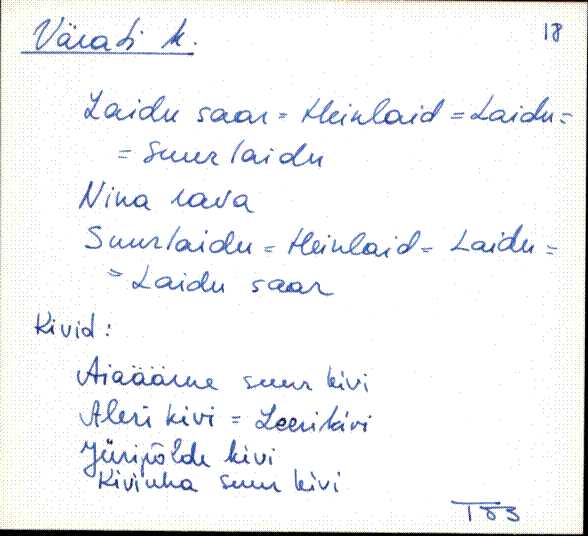 Värati k. 18
Laidu saar = Heinlaid = Laidu =
= Suurlaidu
Nina rava
Suurlaidu = Heinlaid = Laidu =
= Laidu saar
Kivid:
Aiaääme suur kivi
Aleri kivi = Leerikivi
Jüripõldu kivi
suur kivi